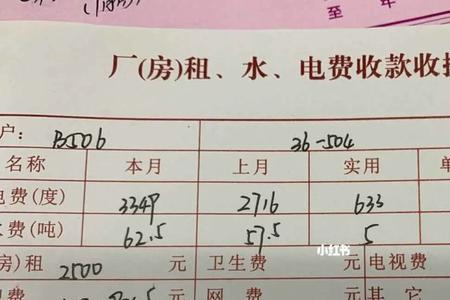 至 年
厂(房)租、水、电费收款收
户: B506 36-504
名称 本月 上月 实用 单
电费(度) 3349 2716 633
水费(吨) 62.5 57.5 5
房)租 2500 元 卫生费 元 电视费
元 网费 元 其它
小红书